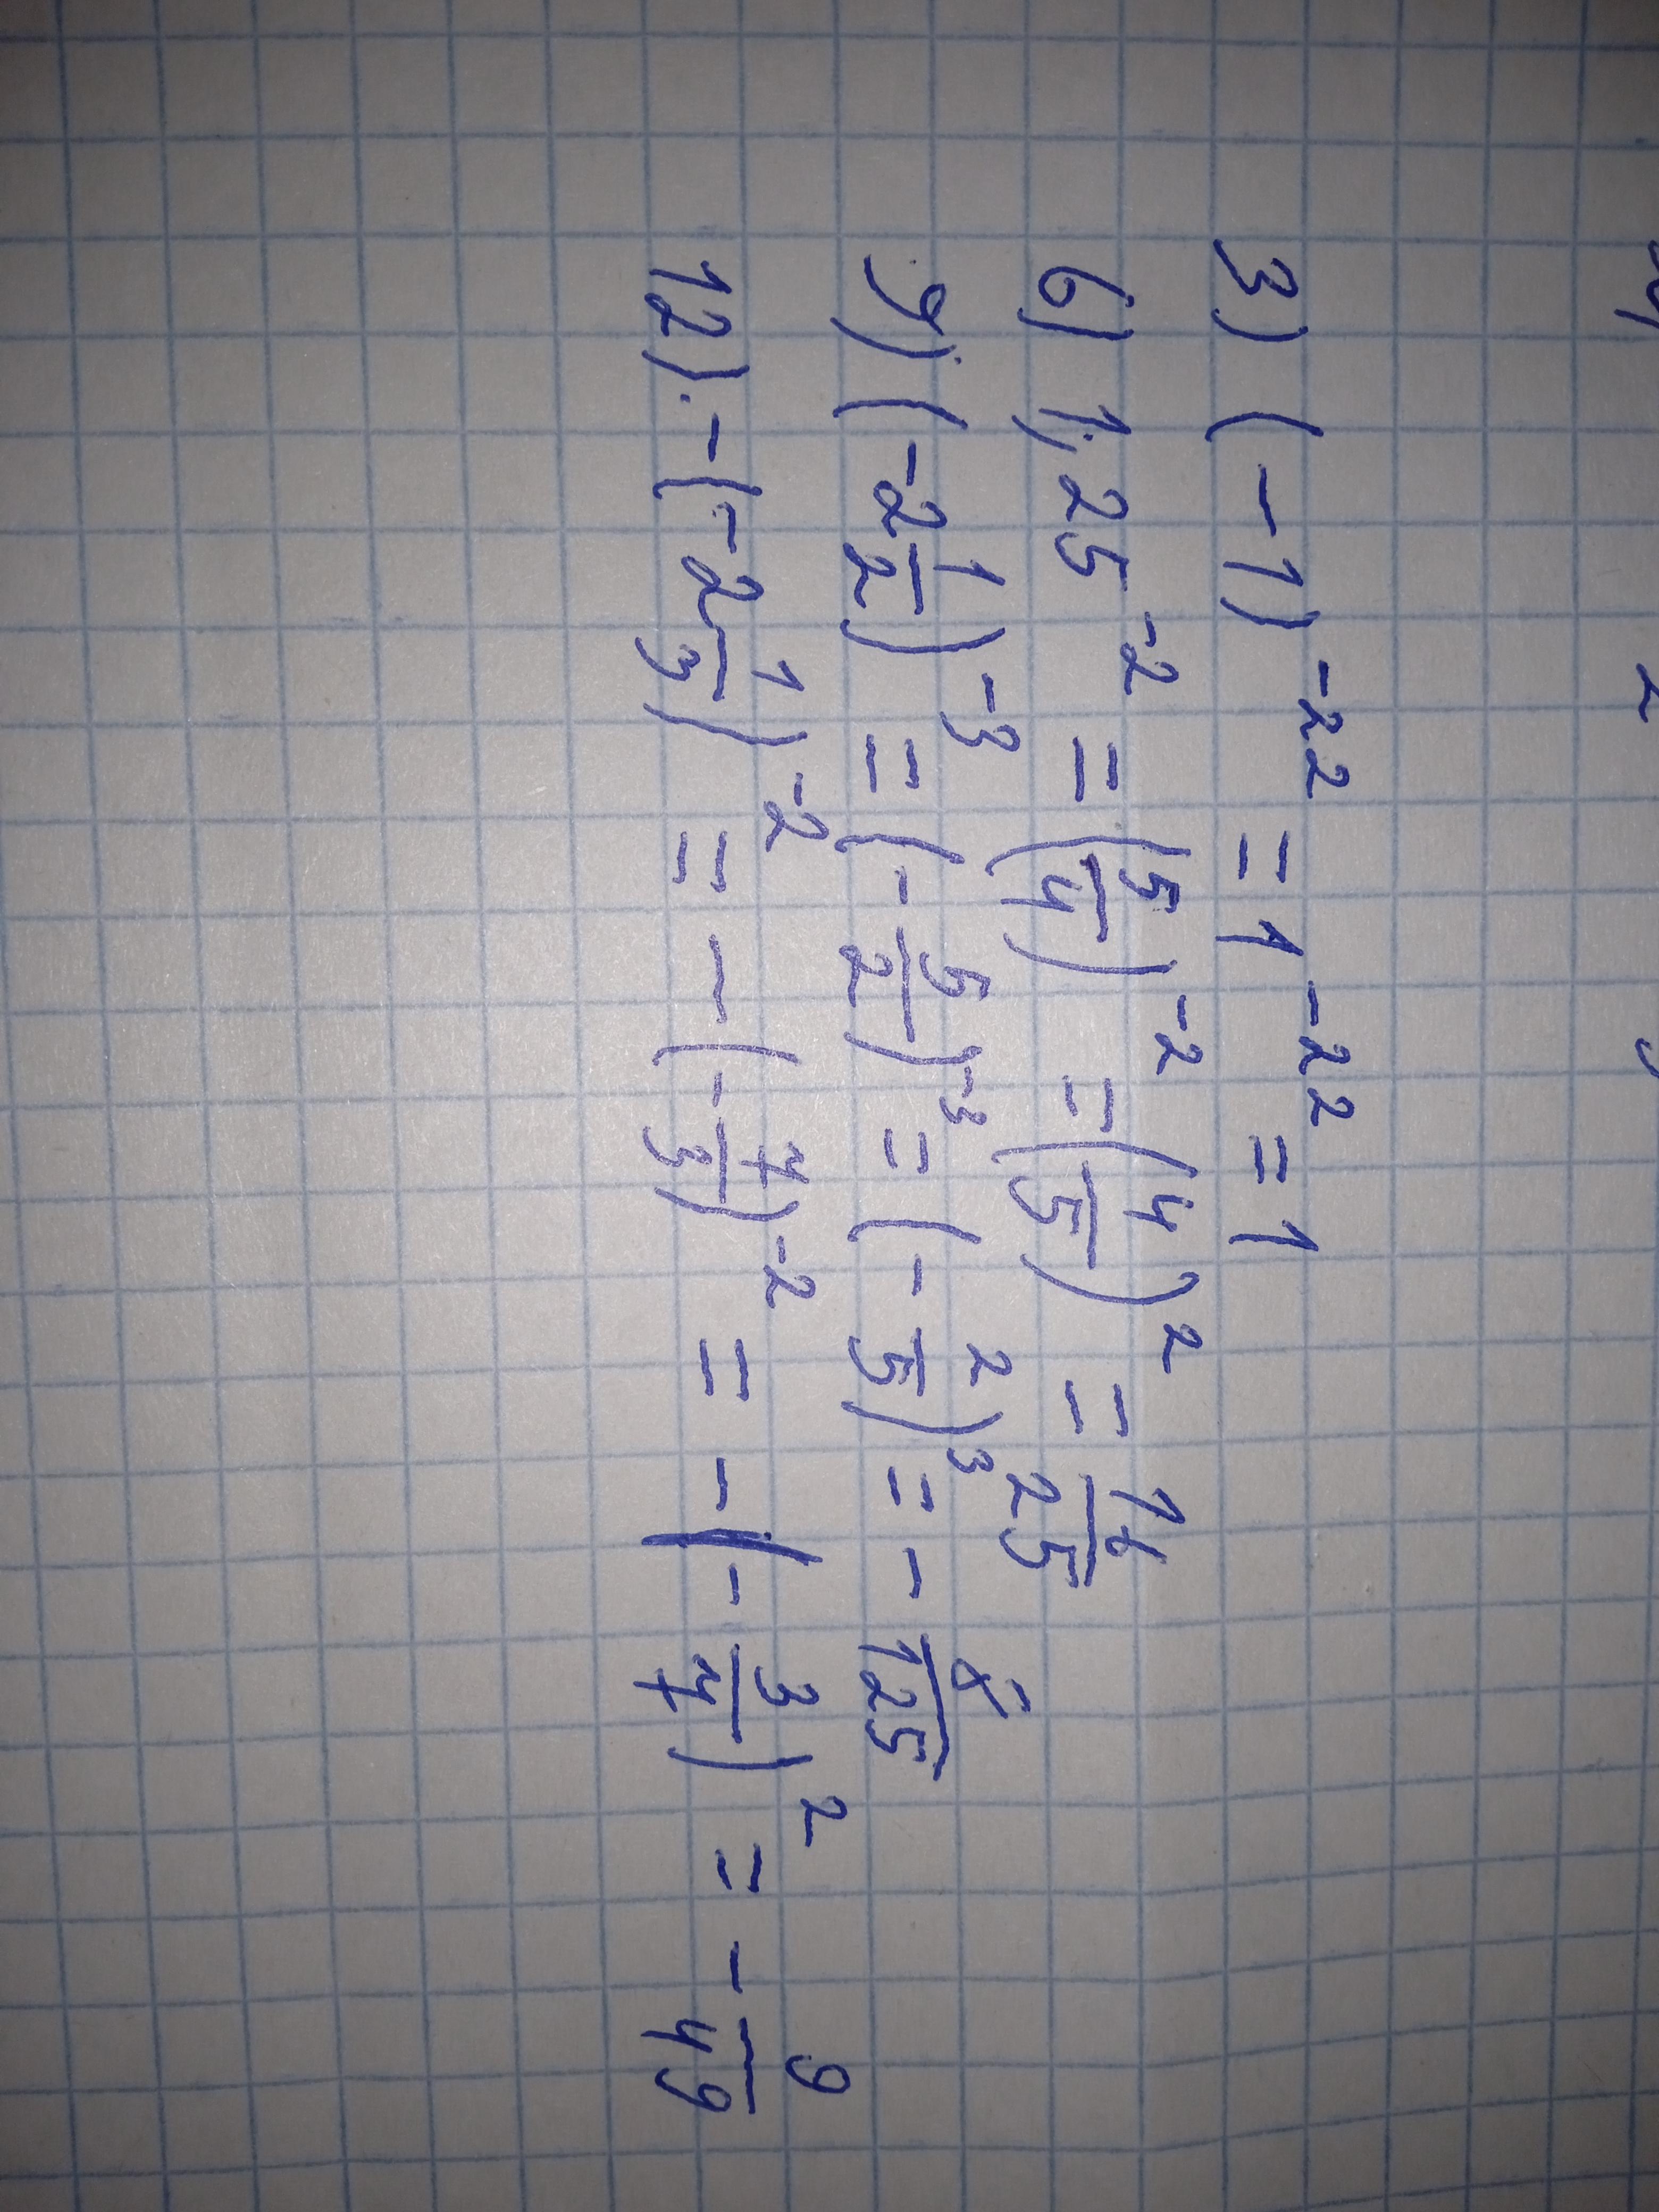 3) (-1)^{-22} = 1^{-22} = 1
6) 1,25^{-2} = (5/4)^{-2} = (4/5)^2 = 16/25
9) (-2 1/2)^{-3} = (-5/2)^{-3} = (-2/5)^3 = -8/125
12) -(-2 1/3)^{-2} = -(-7/3)^{-2} = -(-3/7)^2 = -9/49